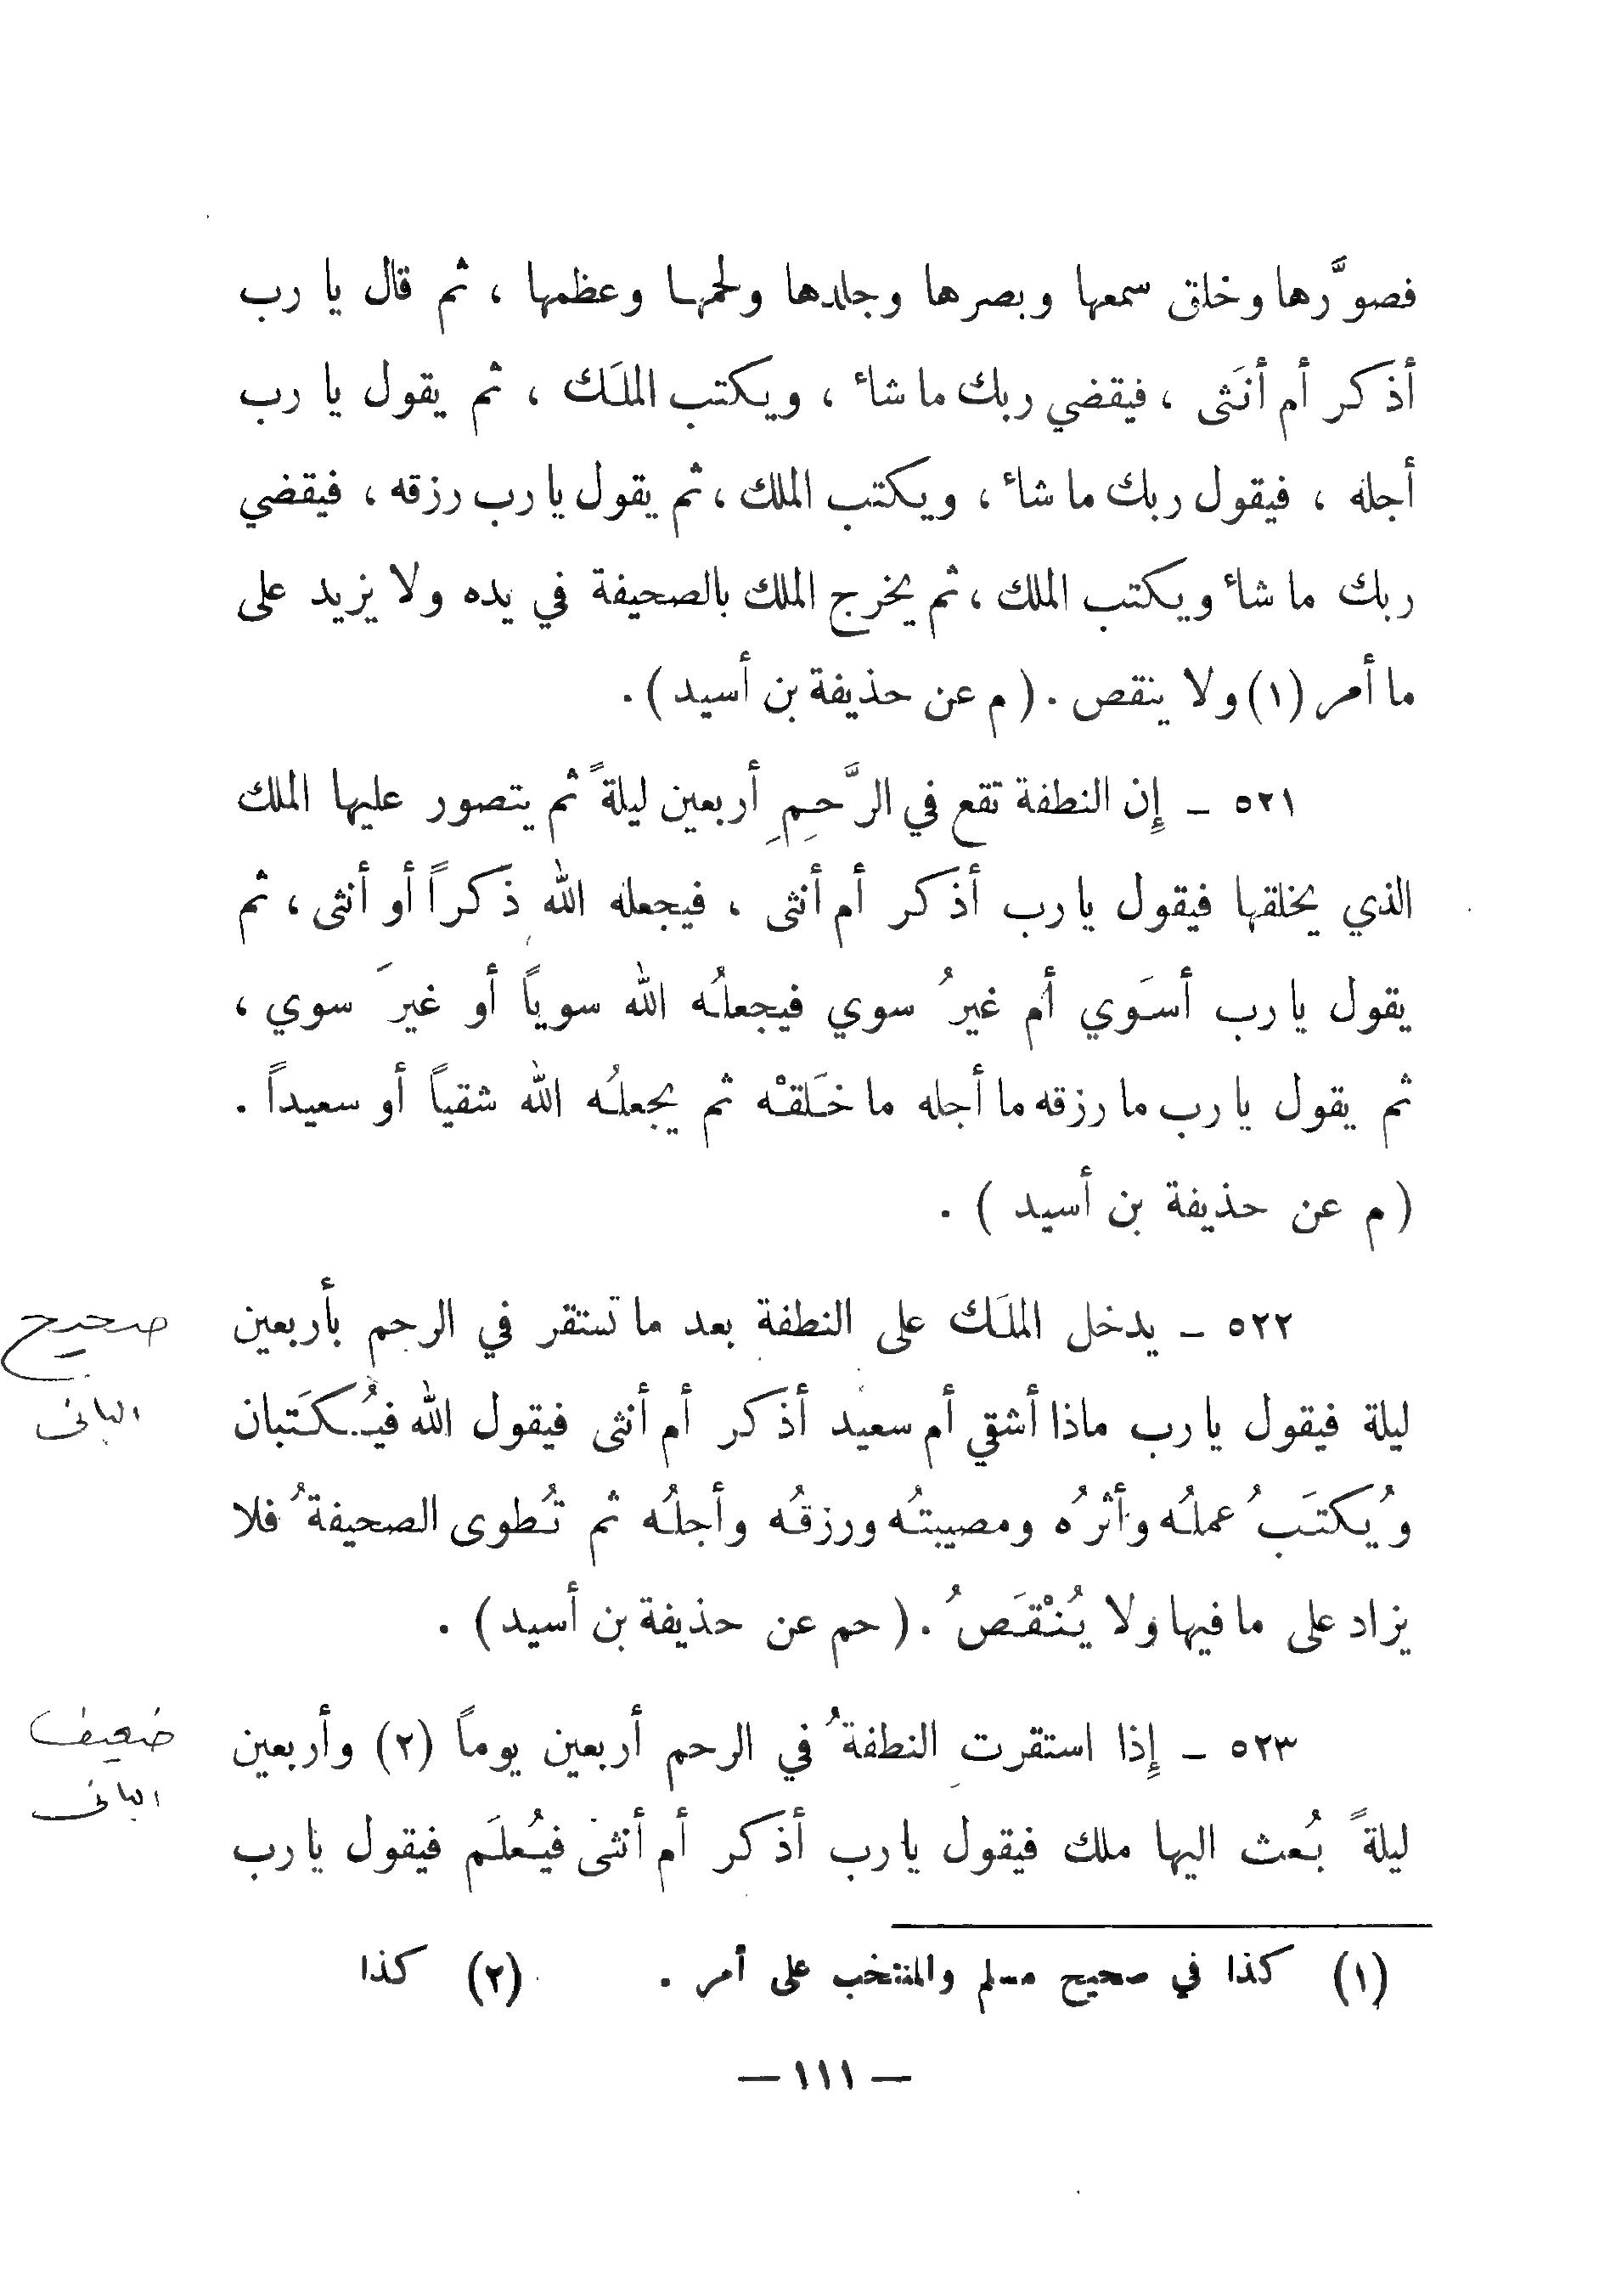 فصوَّرها وخلق سمعها وبصرها وجلدها ولحمها وعظمها ، ثم قال يا رب
أذكر أم أنَثى ، فيقضي ربك ما شاء ، ويكتب الملَك ، ثم يقول يا رب
أجله ، فيقول ربك ما شاء ، ويكتب الملك ، ثم يقول يا رب رزقه ، فيقضي
ربك ما شاء ويكتب الملك ، ثم يخرج الملك بالصحيفة في يده ولا يزيد على
ما أمر (١) ولا ينقص . ( م عن حذيفة بن أسيد ) .
٥٢١ ـ إِن النطفة تقع في الرَّحِمِ أربعين ليلةً ثم يتصور عليها الملك
الذي يخلقها فيقول يا رب أذكر أم أنثى ، فيجعله الله ذكراً أو أنثى ، ثم
يقول يا رب أسَوي أم غيرُ سوي فيجعلُه الله سوياً أو غيرَ سوي ،
ثم يقول يا رب ما رزقه ما أجله ما خَلقْه ثم يجعلُه الله شقياً أو سعيداً .
( م عن حذيفة بن أسيد ) .
٥٢٢ ـ يدخل الملَك على النطفة بعد ما تستقر في الرحم بأربعين
صحيح
ليلة فيقول يا رب ماذا أشقي أم سعيد أذكر أم أنثى فيقول الله فيُكتَبان
البانى
وُيكتَبُ عملُه وأثرُه ومصيبتُه ورزقُه وأجلُه ثم تُطوى الصحيفةُ فلا
يزاد على ما فيها ولا يُنْقَصُ . ( حم عن حذيفة بن أسيد ) .
٥٢٣ ـ إِذا استقرت النطفةُ في الرحم أربعين يوماً (٢) وأربعين
ضعيف
البانى
ليلةً بُعث اليها ملك فيقول يا رب أذكر أم أنثى فيُعلَم فيقول يا رب
(١) كذا في صحيح مسلم والمنتخب على أمر . (٢) كذا
— ١١١ —